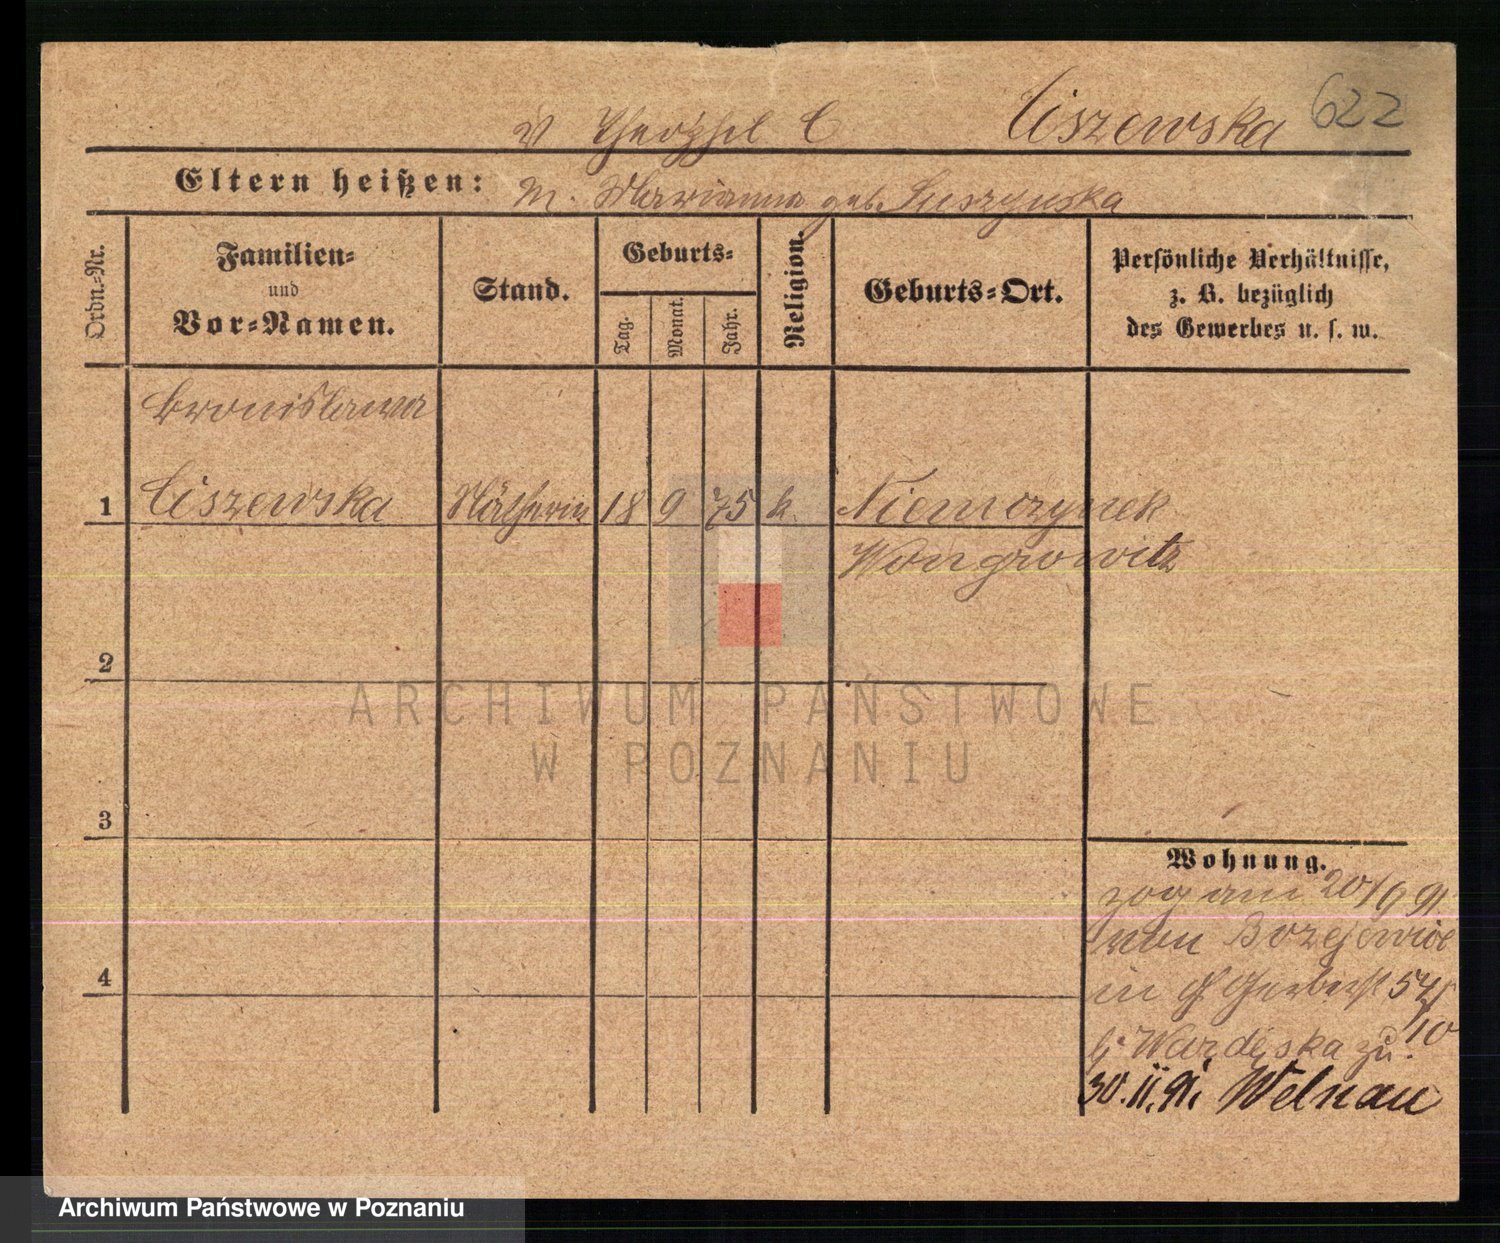 Ciszewska 622
V Theophil C
Eltern heißen: M. Marianna geb. Suszynska
Ordn.-Nr.
Familien-
und
Vor-Namen.
Stand.
Geburts-
Tag.
Monat.
Jahr.
Religion.
Geburts-Ort.
Persönliche Verhältnisse,
z. B. bezüglich
des Gewerbes u. s. w.
Bronislawa
1 Ciszewska Nätherin 18 9 75 k. Niemczynek
Wongrowitz
2
3
4
Wohnung.
zog am 20/9 91
von Bozejewice
in 54/
10
b. Wardęska zu.
30.11.91. Welnau
ARCHIWUM PAŃSTWOWE
W POZNANIU
Archiwum Państwowe w Poznaniu